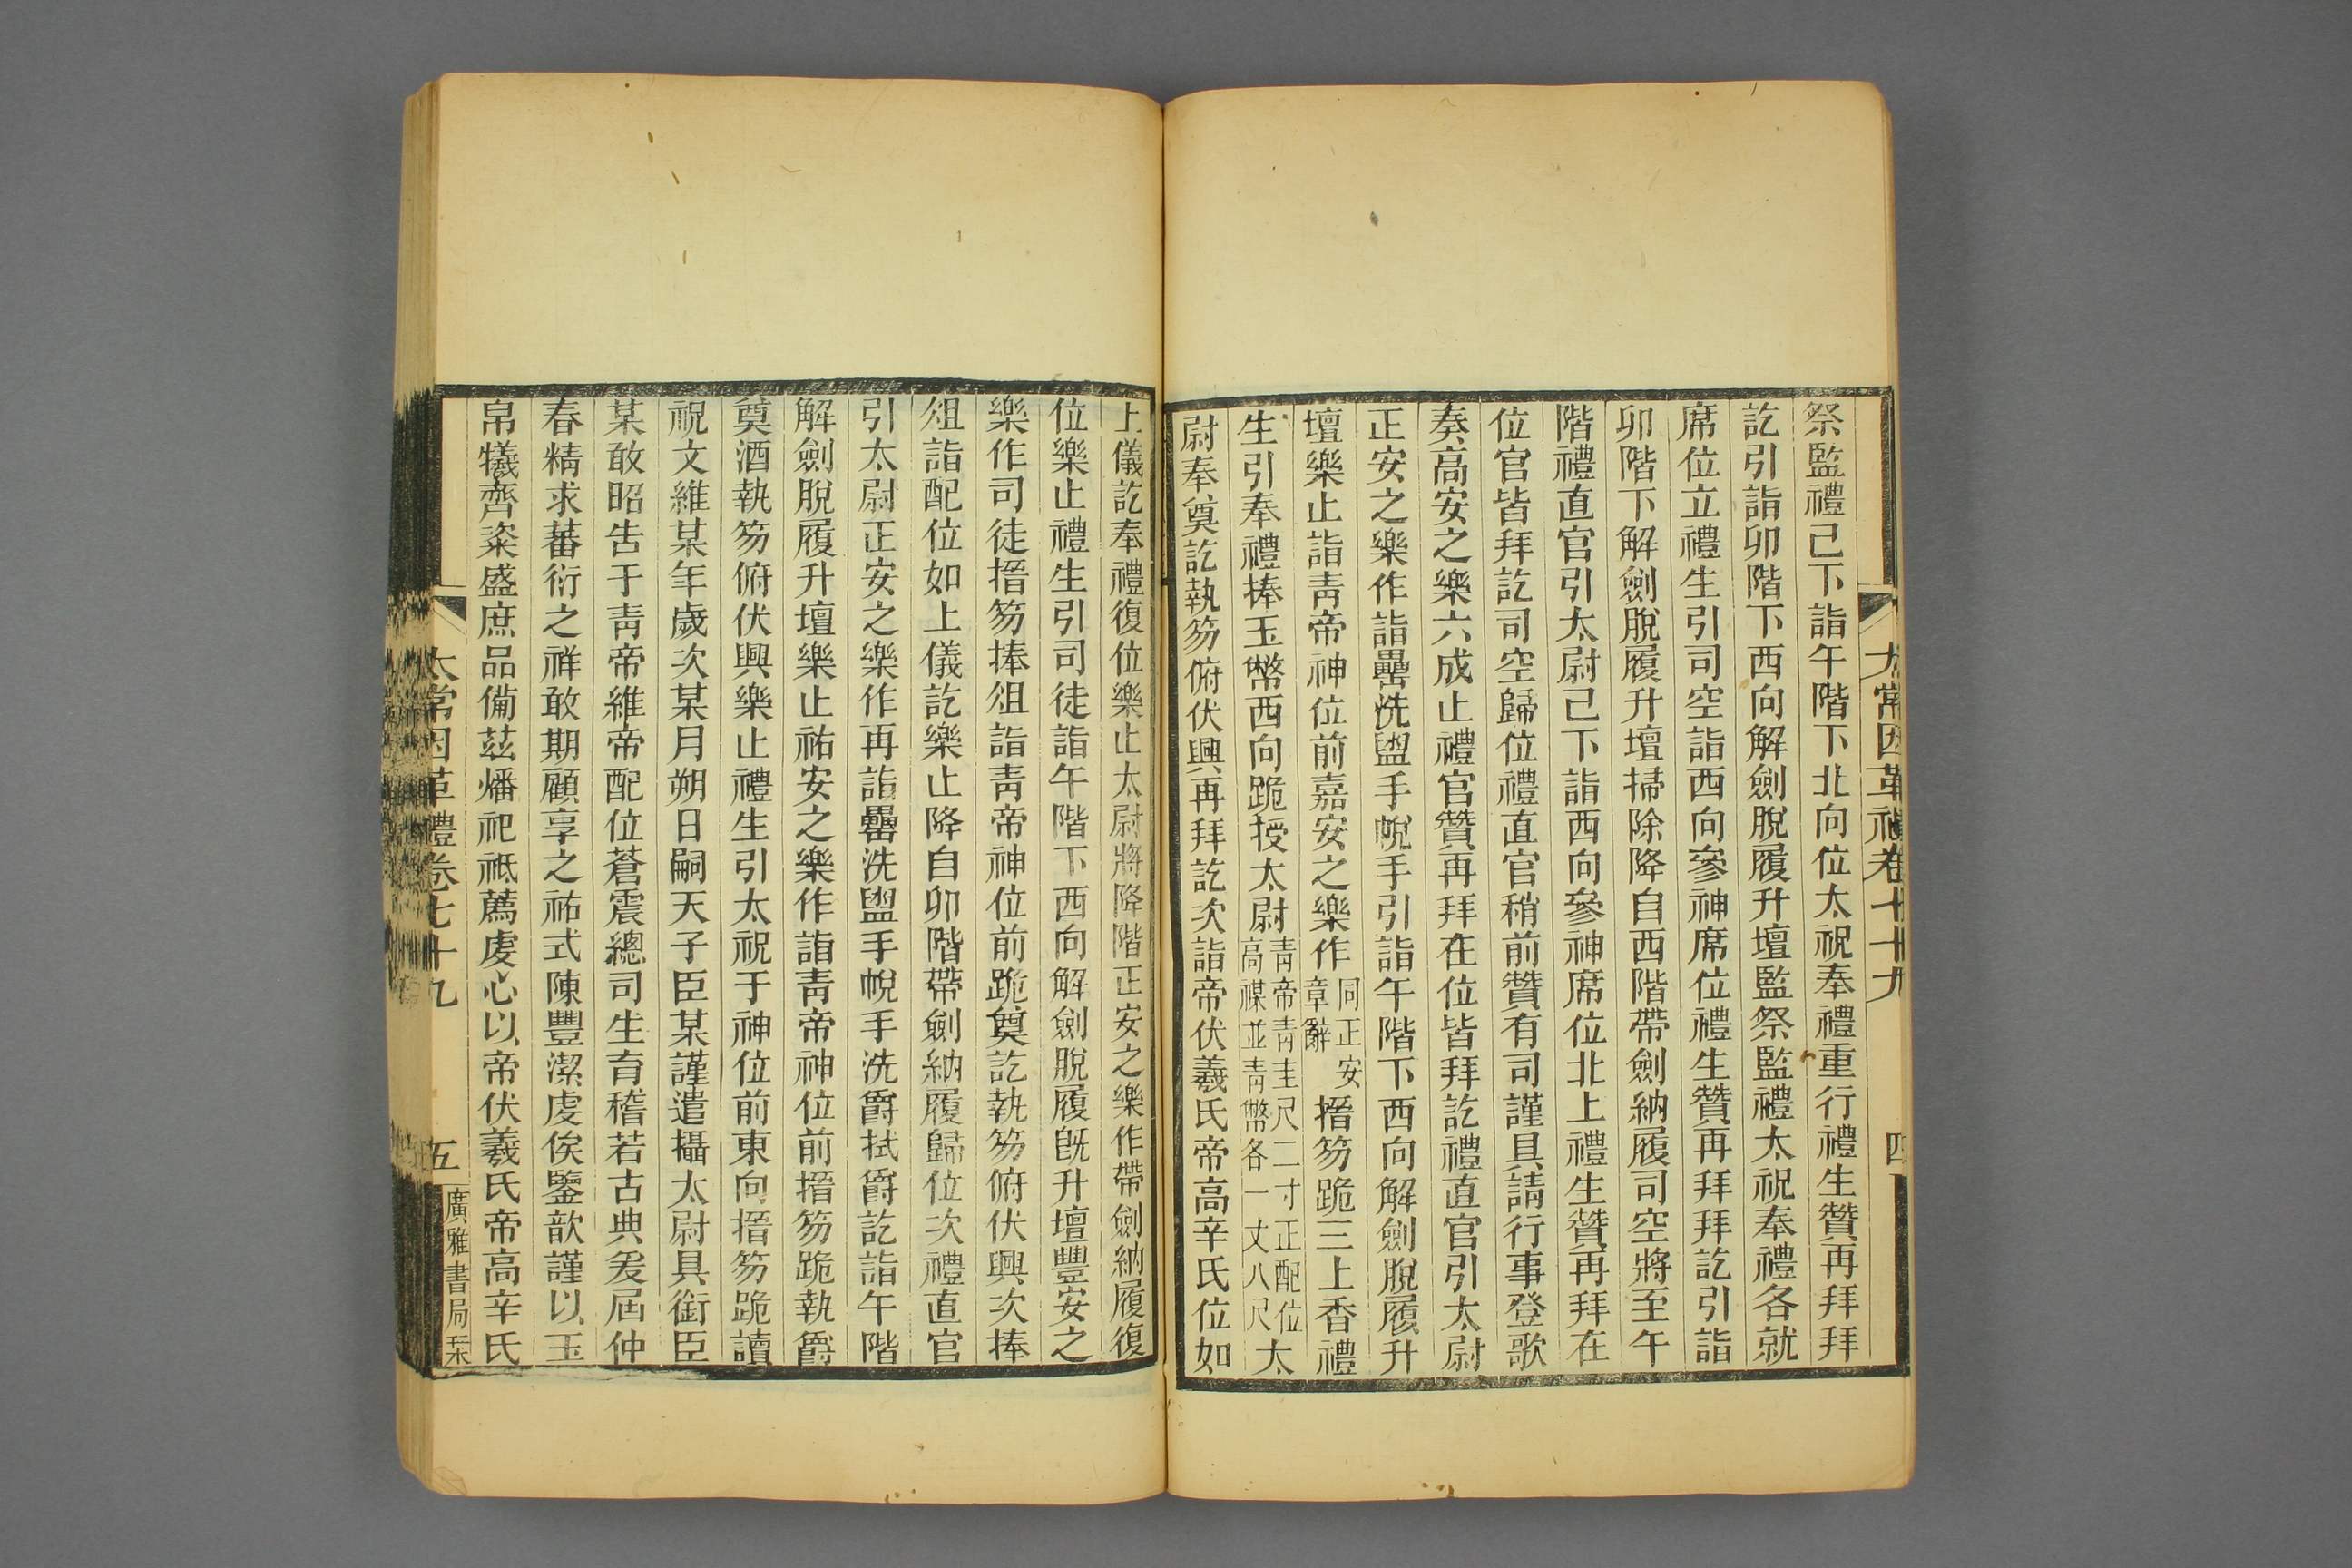 祭監禮已下詣午階下北向位太祝奉禮重行禮生贊再拜拜
訖引詣卯階下西向解劍脫履升壇監祭監禮太祝奉禮各就
席位立禮生引司空詣西向參神席位禮生贊再拜拜訖引詣
卯階下解劍脫履升壇掃除降自西階帶劍納履司空將至午
階禮直官引太尉已下詣西向參神席位北上禮生贊再拜在
位官皆拜訖司空歸位禮直官稍前贊有司謹具請行事登歌
奏高安之樂六成止禮官贊再拜在位皆拜訖禮直官引太尉
正安之樂作詣罍洗盥手帨手引詣午階下西向解劍脫履升
壇樂止詣青帝神位前嘉安之樂作同正安章辭搢笏跪三上香禮
生引奉禮捧玉幣西向跪授太尉青帝青圭尺二寸正配位高禖並青幣各一丈八尺太
尉奉奠訖執笏俯伏興再拜訖次詣帝伏羲氏帝高辛氏位如
太常因革禮卷七十九
四
上儀訖奉禮復位樂止太尉將降階正安之樂作帶劍納履復
位樂止禮生引司徒詣午階下西向解劍脫履旣升壇豐安之
樂作司徒搢笏捧俎詣青帝神位前跪奠訖執笏俯伏興次捧
俎詣配位如上儀訖樂止降自卯階帶劍納履歸位次禮直官
引太尉正安之樂作再詣罍洗盥手帨手洗爵拭爵訖詣午階
解劍脫履升壇樂止祐安之樂作詣青帝神位前搢笏跪執爵
奠酒執笏俯伏興樂止禮生引太祝于神位前東向搢笏跪讀
祝文維某年歲次某月朔日嗣天子臣某謹遣攝太尉具銜臣
某敢昭告于青帝維帝配位蒼震總司生育稽若古典爰屆仲
春精求蕃衍之祥敢期顧享之祐式陳豐潔虔俟鑒歆謹以玉
帛犧齊粢盛庶品備茲燔祀祗薦虔心以帝伏羲氏帝高辛氏
太常因革禮卷七十九
五
廣雅書局栞